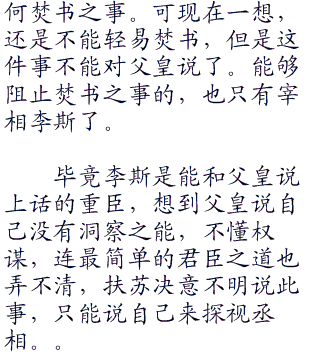 何焚书之事。可现在一想，
还是不能轻易焚书，但是这
件事不能对父皇说了。能够
阻止焚书之事的，也只有宰
相李斯了。
毕竟李斯是能和父皇说
上话的重臣，想到父皇说自
己没有洞察之能，不懂权
谋，连最简单的君臣之道也
弄不清，扶苏决意不明说此
事，只能说自己来探视丞
相。。